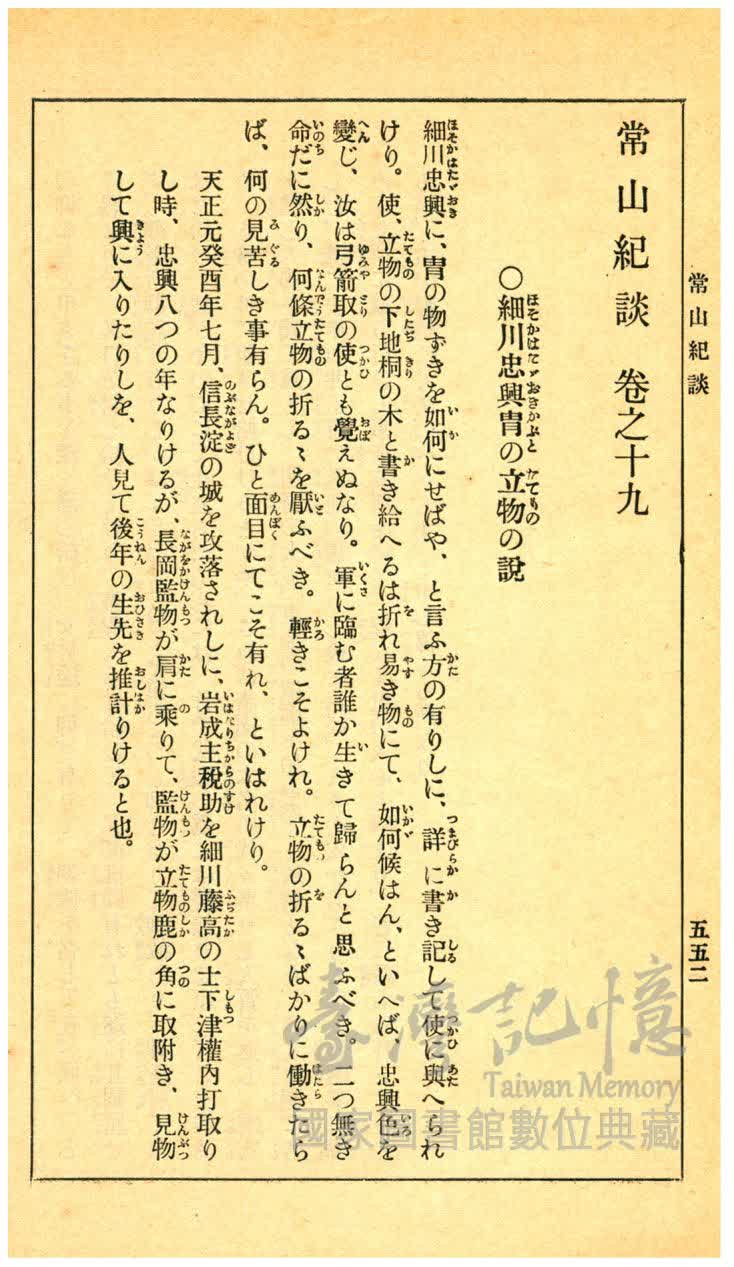 常山紀談
五五二
常山紀談 卷之十九
○細川忠興冑の立物の說
細川忠興に、冑の物ずきを如何にせばや、と言ふ方の有りしに、詳に書き記して使に與へられ
けり。使、立物の下地桐の木と書き給へるは折れ易き物にて、如何候はん、といへば、忠興色を
變じ、汝は弓箭取の使とも覺えぬなり。軍に臨む者誰か生きて歸らんと思ふべき。二つ無き
命だに然り、何條立物の折るゝを厭ふべき。輕きこそよけれ。立物の折るゝばかりに働きたら
ば、何の見苦しき事有らん。ひと面目にてこそ有れ、といはれけり。
天正元癸酉年七月、信長淀の城を攻落されしに、岩成主稅助を細川藤高の士下津權內打取り
し時、忠興八つの年なりけるが、長岡監物が肩に乘りて、監物が立物鹿の角に取附き、見物
して興に入りたりしを、人見て後年の生先を推計りけると也。
臺灣記憶
Taiwan Memory
國家圖書館數位典藏